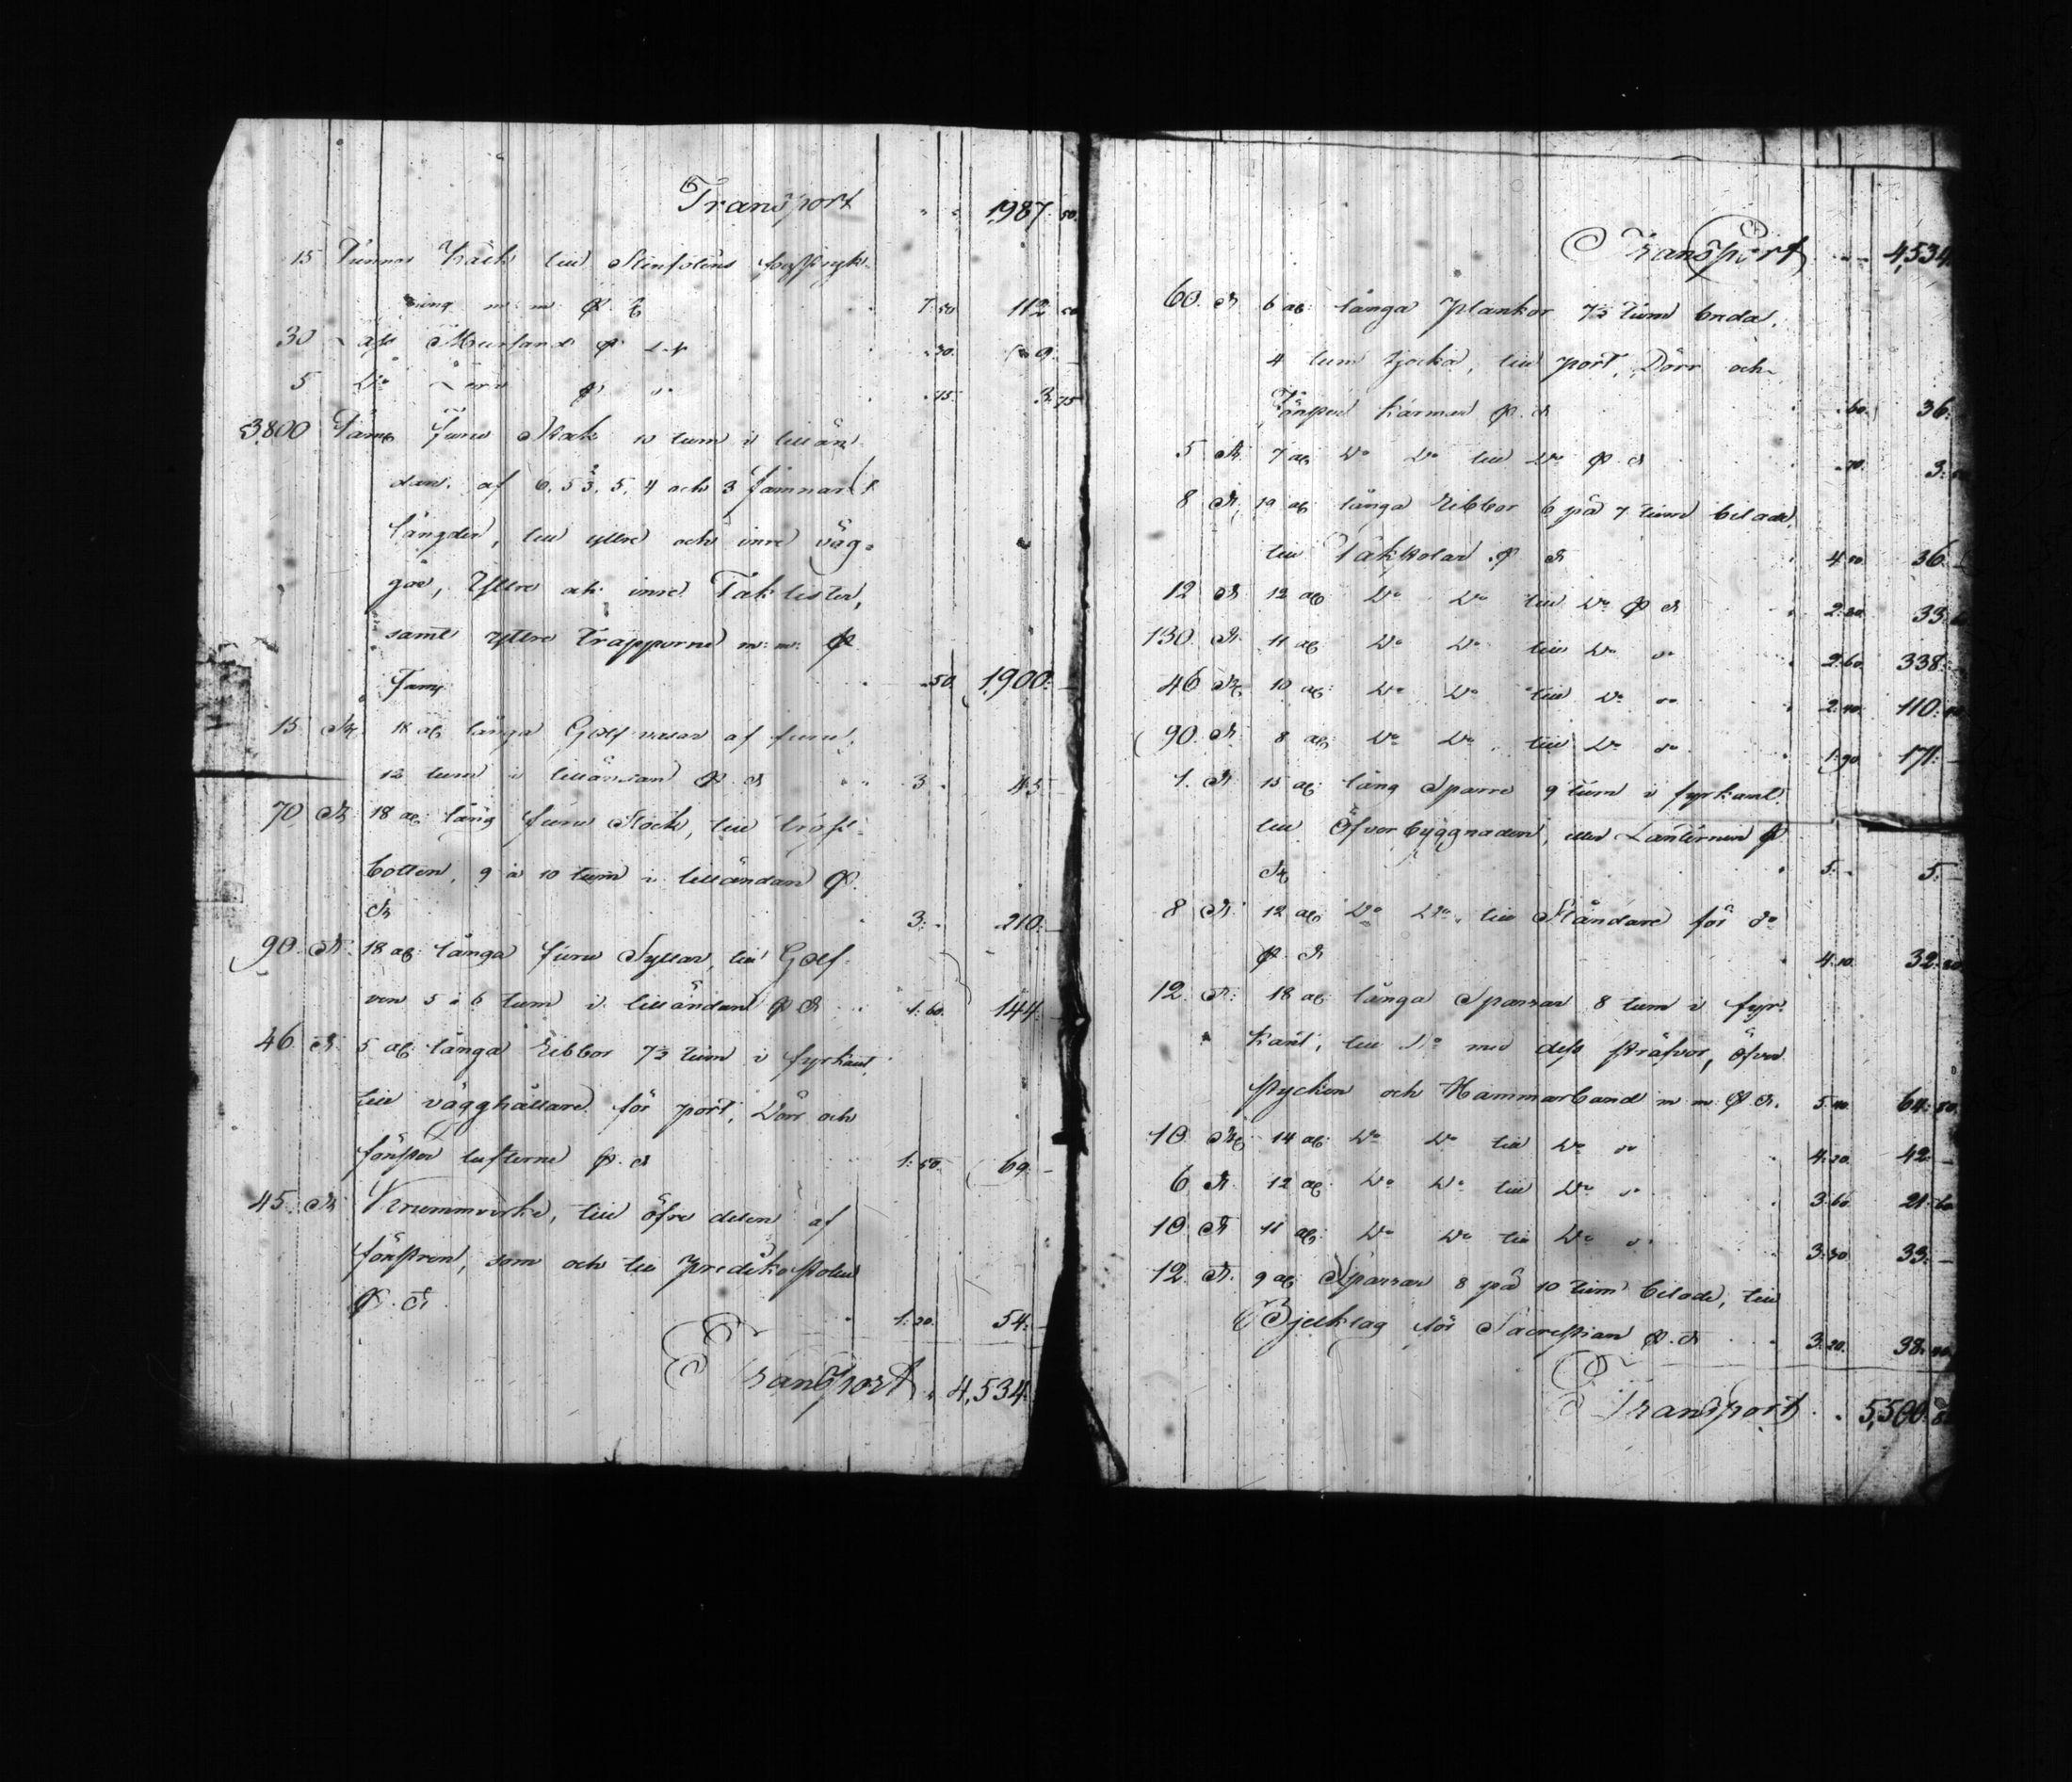 Transport " " 1987. 50.
15 Tunnor Kalk till Stenfotens forstryk-
ning m. m. 7. 50. 112. 50
30 Murfand " 30. 9. —
5 Do Lera " 75. 3. 75
3800 Famn Furu Stock 10 tum i lillän-
dan. af 6, 5½, 5, 4 och 3 famnars
längder, till yttre och inre väg-
gar, Yttre och inre Taklister,
samt yttre Trapporne m: m:
Famn " 50. 1,900. —
15 St 18 al: långa Golf vasar af furu,
12 tum i lilländan St " " 3. " 45 —
70 St 18 al: lång furu Stock, till tross-
botten, 9 à 10 tum i lilländan
St 3. — 210. —
90. St. 18 al: långa furu Syllar, till Golf-
ven 5 à 6 tum i lilländan St 1. 60. 144. —
46 St 5 al: långa Ribbor 7½ tum i fyrkant,
till vägghållare för port, Dörr och
fönster lufterne St 1: 50. 69. —
45. St Krummvirke, till öfre delen af
fönstren, som och till Predikostolen
St. 1. 20. 54. —
Transport " 4,534.
Transport " " 4,534.
60. St 6 al: långa Plankor 7½ tum breda,
4 tum tjocka, till port, Dörr och
Fönster Karmar St " 60. 36. —
5 St 7 al Do Do till Do St " 70. 3. 50
8 St 19 al: långa Ribbor 6 på 7 tum bilade
till Takstolar St 4. 50. 36. —
12 St 12 al Do Do till Do St 2. 80. 33. 60
130. St. 11 al Do Do till Do do 2. 60. 338. —
46 St 10 al: Do Do till Do do 2. 40. 110. 40
90. St 8 al: Do Do till Do do 1. 90. 171. —
1. St 15 al: lång Sparre 9 tum i fyrkant.
till Öfverbyggnaden, eller Lanternin
St 5. — 5. —
8 St 12 al: Do Do till Ståndare för do
St 4. 10. 32. 80
12. St: 18 al: långa Sparrar 8 tum i fyr-
kant, till Do med dess sträfvor, öfver
stycken och Hammarband m m. St. 5. 40. 64. 80.
10 St 14 al: Do Do till Do do 4. 20. 42. —
6 St 12 al: Do Do till Do do 3. 60. 21. 60
10 St 11 al: Do Do till Do do 3. 30. 33. —
12. St. 9 al: Sparrar 8 på 10 tum bilade, till
Bjelklag för Sacrestian St 3. 20. 38. 40
Transport " 5,500. 8